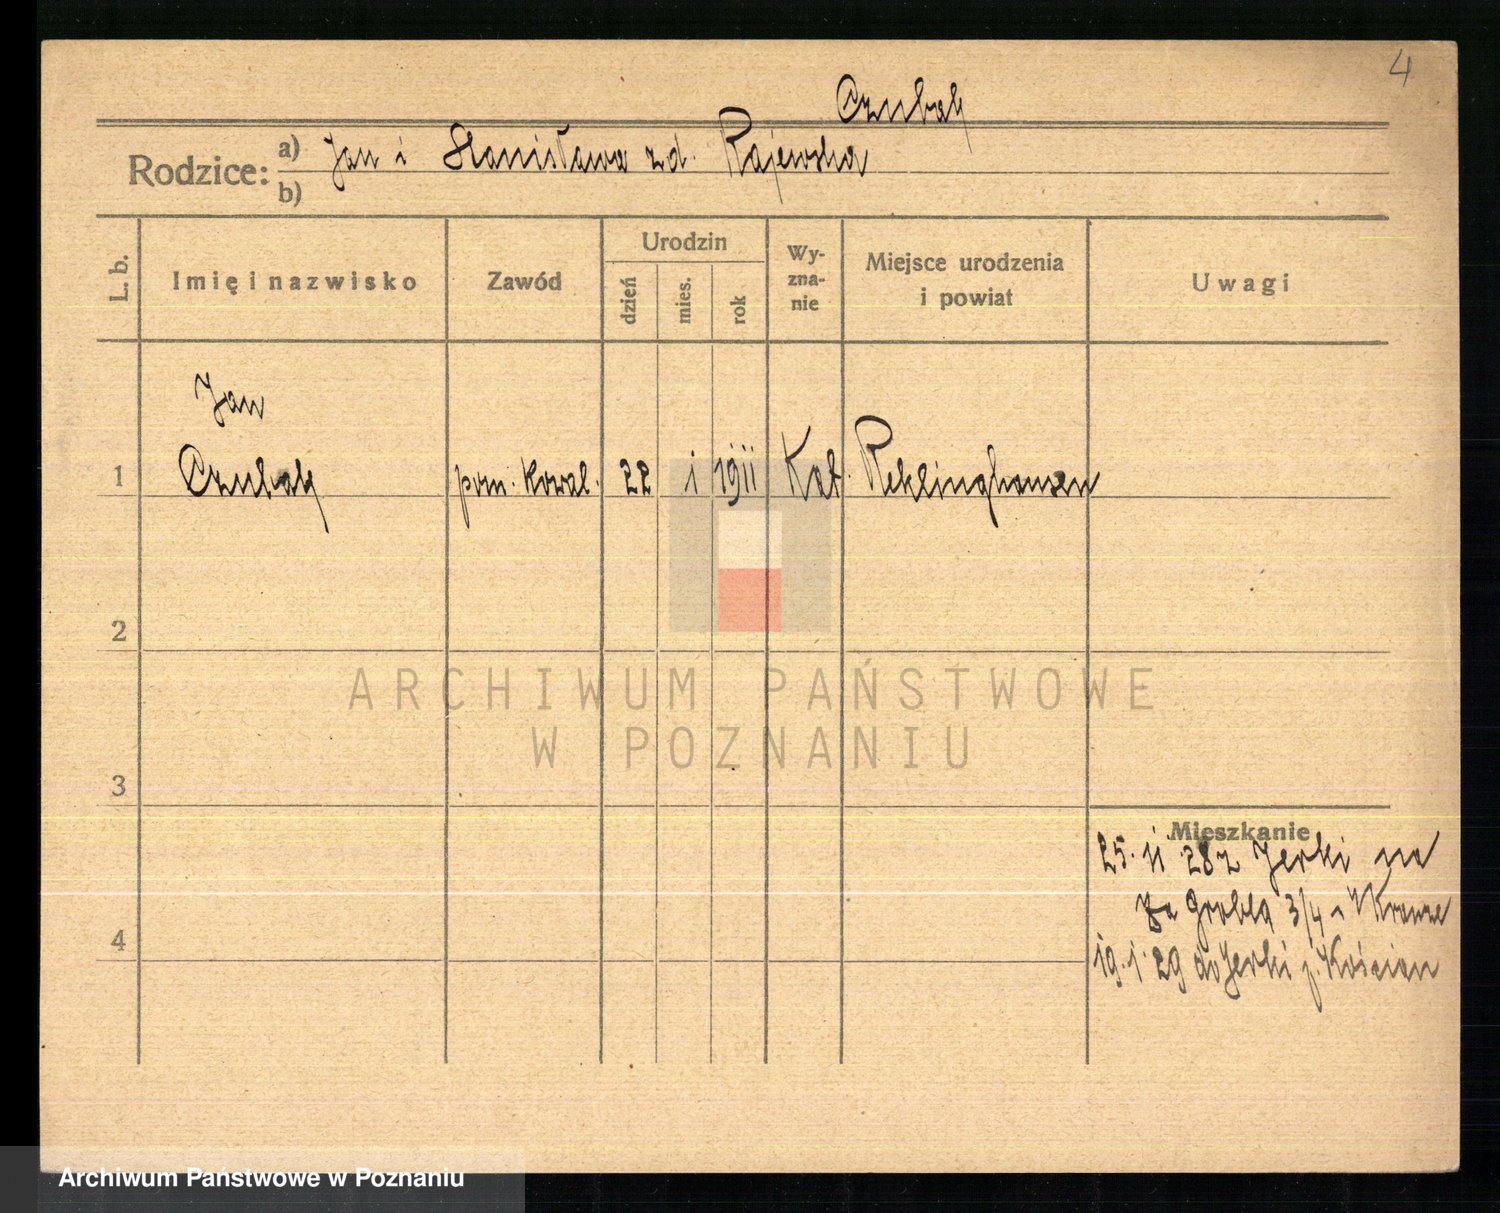 4
Czubak
Rodzice: a) Jan i Stanisława zd. Rajewska
b)
L. b.
Imię i nazwisko
Zawód
Urodzin
dzień
mies.
rok
Wy-
zna-
nie
Miejsce urodzenia
i powiat
Uwagi
Jan
1 Czubak pom. kowal. 22 1 1911 Kat. Reklinghausen
2
3
4
Mieszkanie
25. 11 28 z Jerki na
Za Groblą 3/4 u Krauze
19. 1. 29 do Jerki p. Kościan
ARCHIWUM PAŃSTWOWE
W POZNANIU
Archiwum Państwowe w Poznaniu